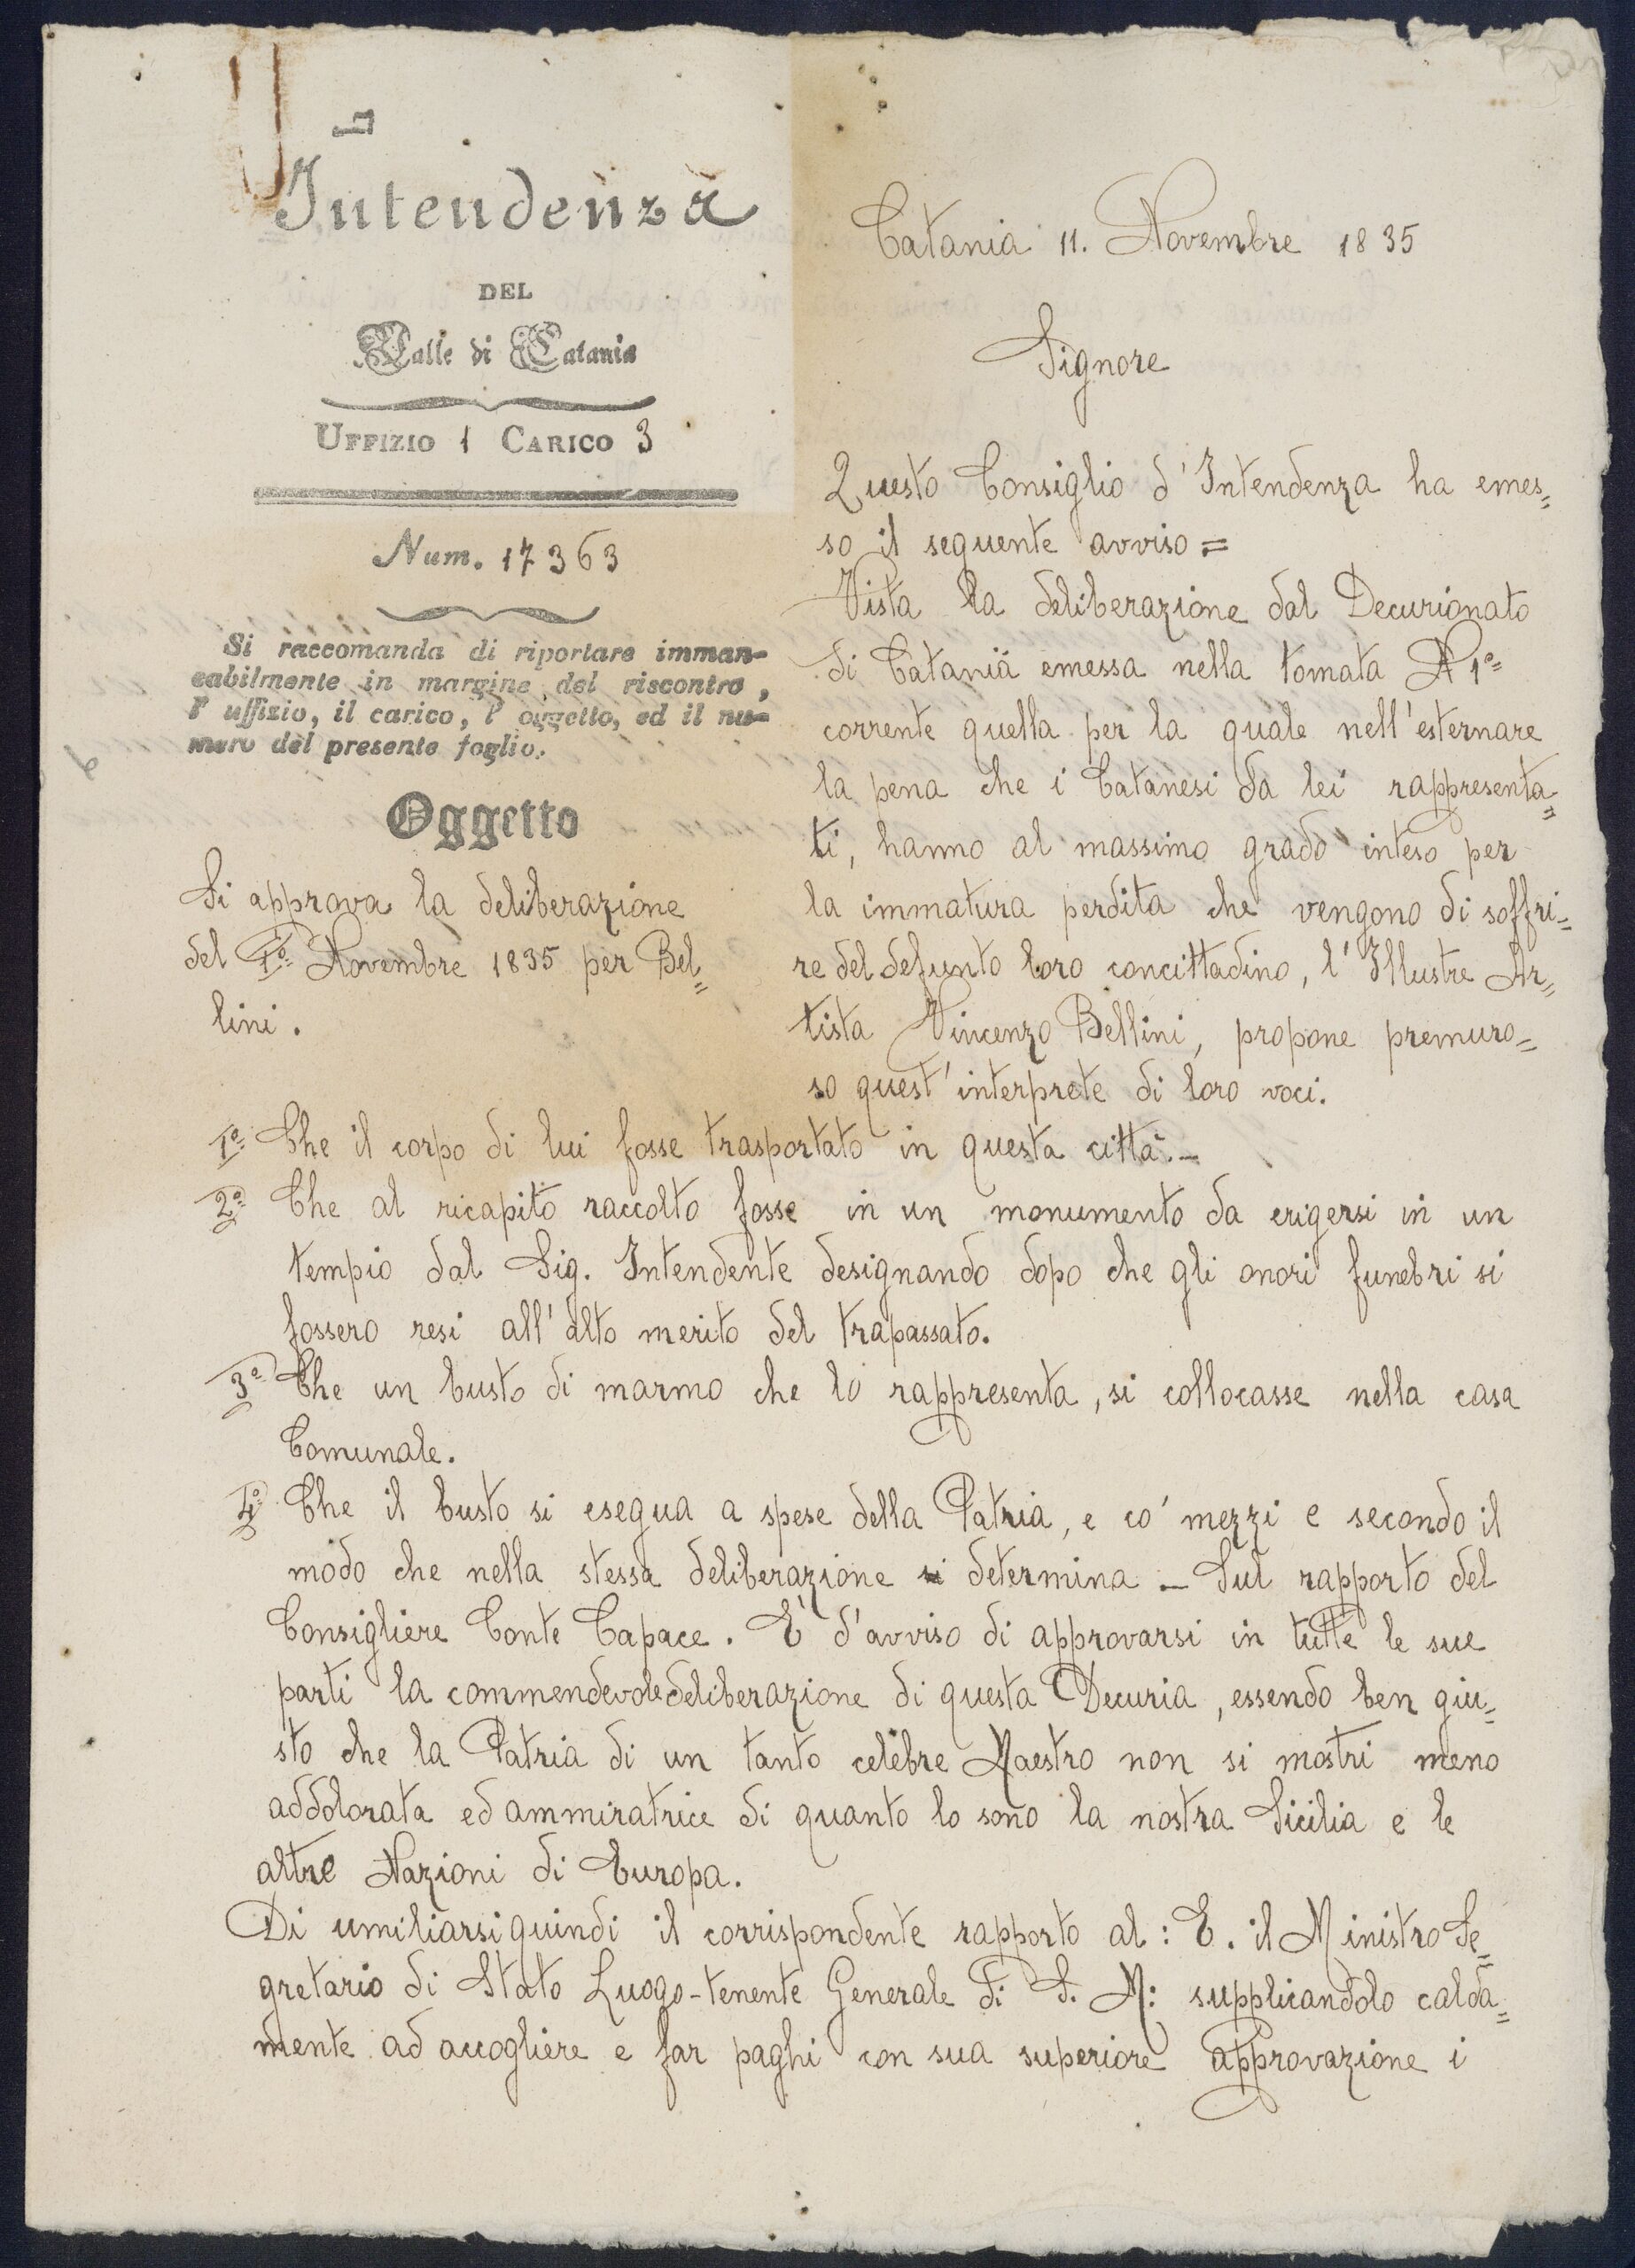 Intendenza
DEL
Valle di Catania
UFFIZIO 1 CARICO 3
Num. 17363
Si raccomanda di riportare imman-
cabilmente in margine del riscontro,
l' uffizio, il carico, l' oggetto, ed il nu-
mero del presente foglio.
Oggetto
Si approva la deliberazione
del 1º Novembre 1835 per Bel=
lini.
Catania 11. Novembre 1835
Signore
Questo Consiglio d'Intendenza ha emes=
so il seguente avviso =
Vista la deliberazione dal Decurionato
di Catania emessa nella tornata N 1º=
corrente quella per la quale nell'esternare
la pena che i Catanesi da lei rappresenta=
ti, hanno al massimo grado inteso per
la immatura perdita che vengono di soffri=
re del defunto loro concittadino, l'Illustre Ar=
tista Vincenzo Bellini, propone premuro=
so quest'interprete di loro voci.
1º Che il corpo di lui fosse trasportato in questa città. -
2º Che al ricapito raccolto fosse in un monumento da erigersi in un
tempio dal Sig. Intendente designando dopo che gli onori funebri si
fossero resi all'alto merito del trapassato.
3º Che un busto di marmo che lo rappresenta, si collocasse nella casa
Comunale.
4º Che il busto si esegua a spese della Patria, e co' mezzi e secondo il
modo che nella stessa deliberazione si determina - Sul rapporto del
Consigliere Conte Capace. E' d'avviso di approvarsi in tutte le sue
parti la commendevole deliberazione di questa Decuria, essendo ben giu=
sto che la Patria di un tanto celebre Maestro non si mostri meno
addolorata ed ammiratrice di quanto lo sono la nostra Sicilia e le
altre Nazioni di Europa.
Di umiliarsi quindi il corrispondente rapporto al: E. il Ministro Se=
gretario di Stato Luogo-tenente Generale di S. M: supplicandolo calda=
mente ad accogliere e far paghi con sua superiore approvazione i